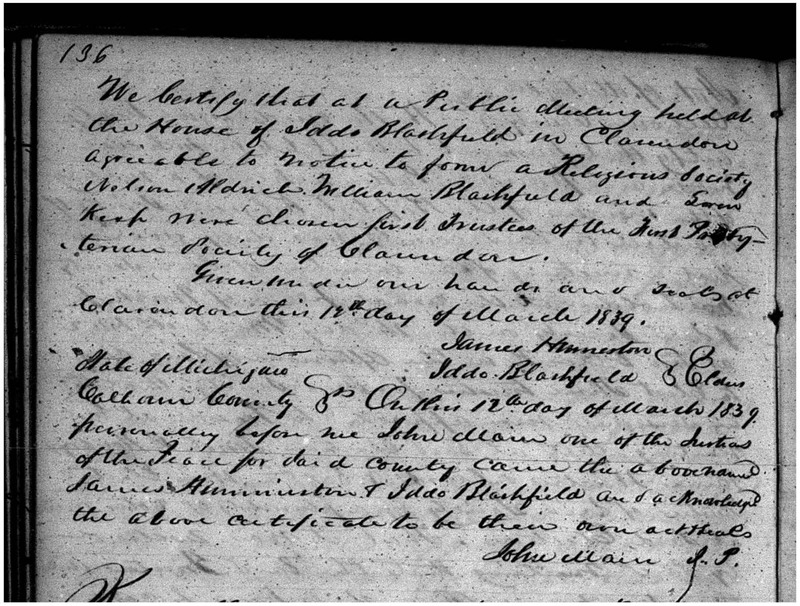 136
We Certify that at a Public Meeting held at
the House of Iddo Blashfield in Clarendon
agreeable to notice to form a Religious Society
Nelson Aldrich William Blashfield and
were chosen first Trustees of the First Presby-
terian Society of Clarendon.
Given under our hands and seals at
Clarendon this 12th day of March 1839.
James Humeston
Iddo Blashfield } Elders
State of Michigan
Calhoun County } ss On this 12th day of March 1839
personally before me John Main one of the Justices
of the Peace for said county came the above named
James Humiston & Iddo Blashfield and acknowledged
the above certificate to be their own act & seals
John Main J. P.